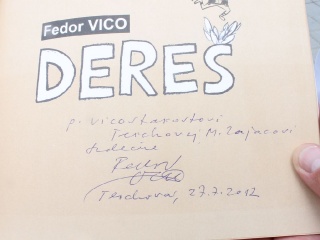 Fedor VICO
DERES
p. vicestarostovi
Terchovej M. Zajacovi
srdečne
Fedor
Vico
Terchová, 27.7.2012